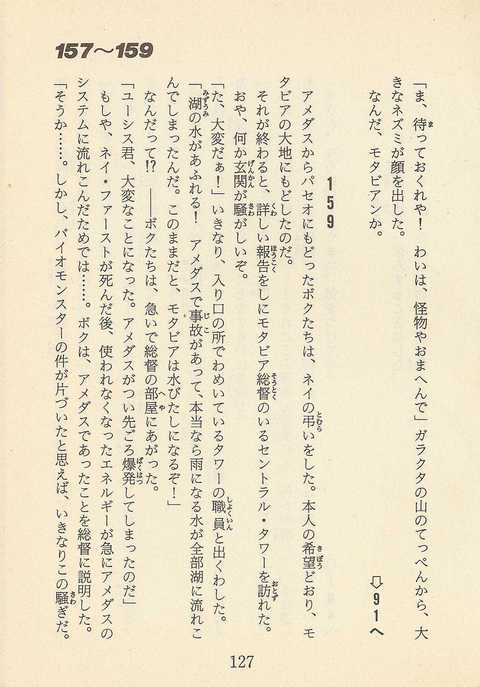 157～159
「ま、待っておくれや！　わいは、怪物やおまへんで」ガラクタの山のてっぺんから、大
きなネズミが顔を出した。
なんだ、モタビアンか。
⇨91へ
159
アメダスからパセオにもどったボクたちは、ネイの弔いをした。本人の希望どおり、モ
タビアの大地にもどしたのだ。
それが終わると、詳しい報告をしにモタビア総督のいるセントラル・タワーを訪れた。
おや、何か玄関が騒がしいぞ。
「た、大変だぁ！」いきなり、入り口の所でわめいているタワーの職員と出くわした。
「湖の水があふれる！　アメダスで事故があって、本当なら雨になる水が全部湖に流れこ
んでしまったんだ。このままだと、モタビアは水びたしになるぞ！」
なんだって!?　――ボクたちは、急いで総督の部屋にあがった。
「ユーシス君、大変なことになった。アメダスがつい先ごろ爆発してしまったのだ」
もしや、ネイ・ファーストが死んだ後、使われなくなったエネルギーが急にアメダスの
システムに流れこんだためでは……。ボクは、アメダスであったことを総督に説明した。
「そうか……。しかし、バイオモンスターの件が片づいたと思えば、いきなりこの騒ぎだ。
127